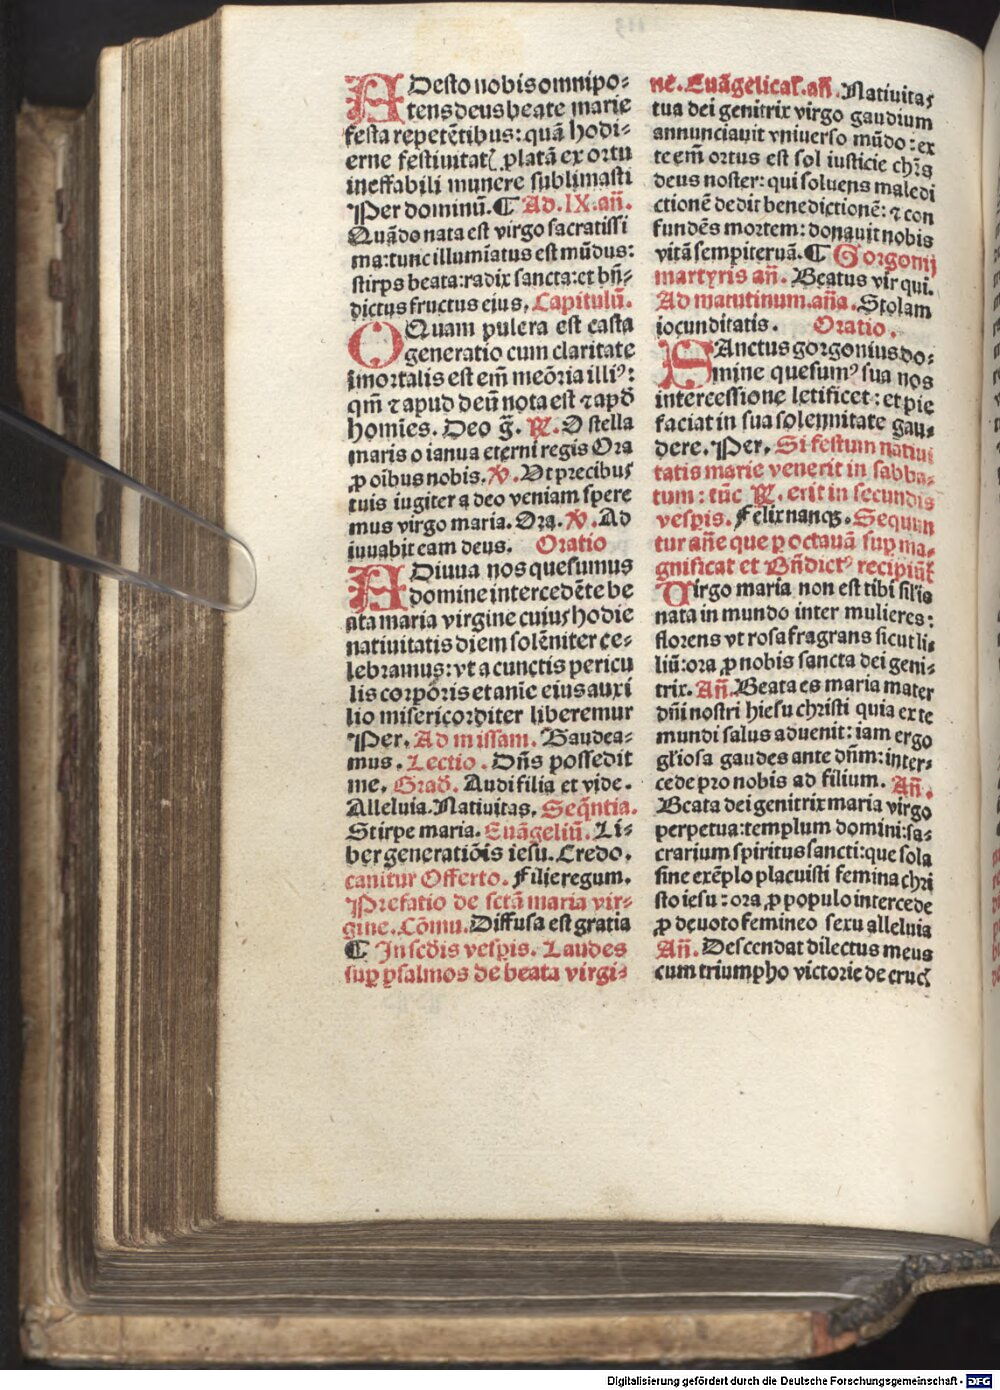 ADesto nobis omnipo-
tens deus beate marie
festa repetētibus: quā hodi-
erne festiuitatꝭ ꝓlatā ex ortu
ineffabili munere sublimasti
Per dominū. ¶ Ad. IX. añ.
Quādo nata est virgo sacratissi
ma: tunc illumiatus est mūdus:
stirps beata: radix sancta: et bñ-
dictus fructus eius. Capitulū.
OQuam pulcra est casta
generatio cum claritate
īmortalis est em̄ meōria illiꝰ:
qm̄ ⁊ apud deū nota est ⁊ apd̄
homīes. Deo g̃. ℟. O stella
maris o ianua eterni regis Ora
ꝓ oībus nobis. ℣. Vt precibus
tuis iugiter a deo veniam spere
mus virgo maria. Ora. ℣. Ad
iuuabit eam deus. Oratio
ADiuua nos quesumus
domine intercedēte be
ata maria virgine cuius hodie
natiuitatis diem solēniter ce-
lebramus: vt a cunctis pericu
lis corporis et anīe eius auxi
lio misericorditer liberemur
Per. Ad missam. Gaudea-
mus. Lectio. Dñs possedit
me. Grad̄. Audi filia et vide.
Alleluia. Natiuitas. Seq̄ntia.
Stirpe maria. Euāgeliū. Li-
ber generatiōis iesu. Credo.
canitur Offerto. Filie regum.
Prefatio de sctā maria vir-
gine. Cōmu. Diffusa est gratia
¶ In sedis vesꝑis. Laudes
suꝑ psalmos de beata virgi-
ne. Euāgelical̄. añ. Natiuitas
tua dei genitrix virgo gaudium
annunciauit vniuerso mūdo: ex
te em̄ ortus est sol iusticie chr̄s
deus noster: qui soluens maledi
ctionē dedit benedictionē: ⁊ con
fundēs mortem: donauit nobis
vitā sempiternā. ¶ Gorgonij
martyris añ. Beatus vir qui.
Ad matutinum. aña. Stolam
iocunditatis. Oratio.
SAnctus gorgonius do-
mine quesumꝰ sua nos
intercessione letificet: et pie
faciat in sua solennitate gau-
dere. Per. Si festum natiui
tatis marie venerit in sabba-
tum: tūc ℟. erit in secundis
vesꝑis. Felix nanqꝫ. Sequun
tur añe que ꝑ octauā suꝑ ma-
gnificat et Bñdictꝰ recipiūt̄
Virgo maria non est tibi sīlis
nata in mundo inter mulieres:
florens vt rosa fragrans sicut li-
liū: ora ꝓ nobis sancta dei geni-
trix. Añ. Beata es maria mater
dñi nostri hiesu christi quia ex te
mundi salus aduenit: iam ergo
gl̄iosa gaudes ante dñm: inter-
cede pro nobis ad filium. Añ.
Beata dei genitrix maria virgo
perpetua: templum domini: sa-
crarium spiritus sancti: que sola
sine exēplo placuisti femina chri
sto iesu: ora ꝓ populo intercede
ꝓ deuoto femineo sexu alleluia
Añ. Descendat dilectus meus
cum triumpho victorie de crucꝭ
Digitalisierung gefördert durch die Deutsche Forschungsgemeinschaft - DFG